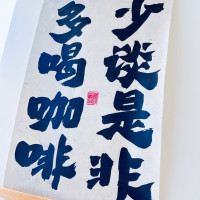 少谈是非
多喝咖啡